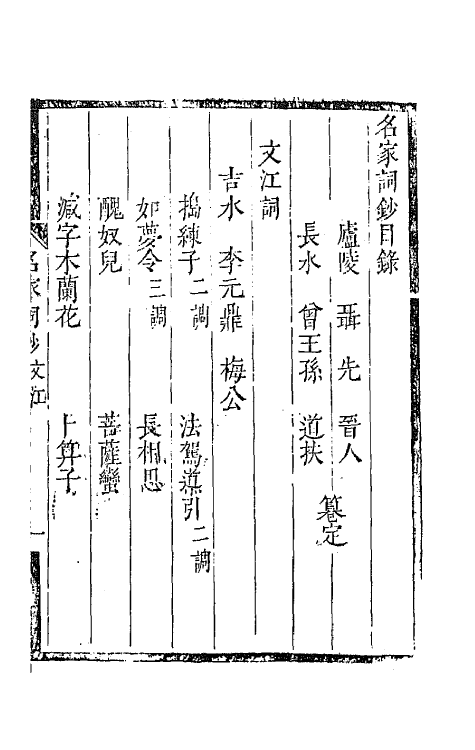 名家詞鈔目錄
廬陵　聶先　晉人
長水　曾王孫　道扶
篹定
文江詞
吉水　李元鼎　梅公
搗練子二調　法駕導引二調
如夢令三調　長相思
醜奴兒　菩薩蠻
減字木蘭花　卜算子
名家詞鈔　文江